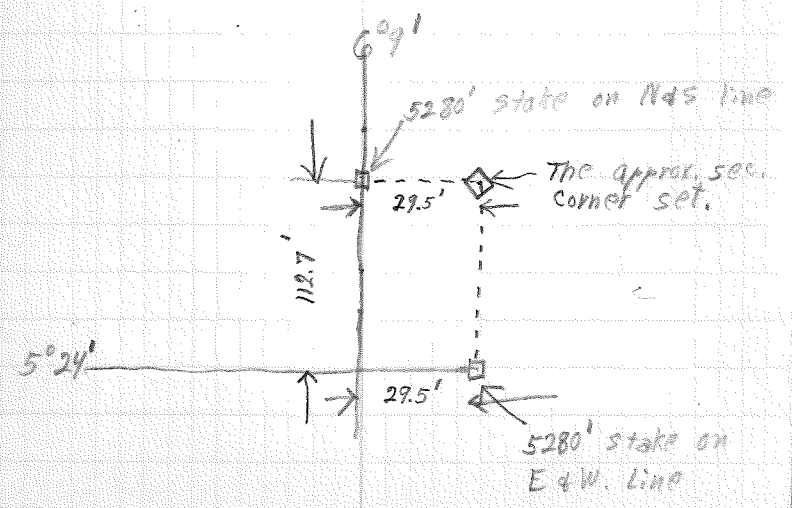 6°9'
5280' stake on N&S line
The approx. sec.
Corner set.
29.5'
112.7'
5°24'
29.5'
5280' stake on
E & W. Line